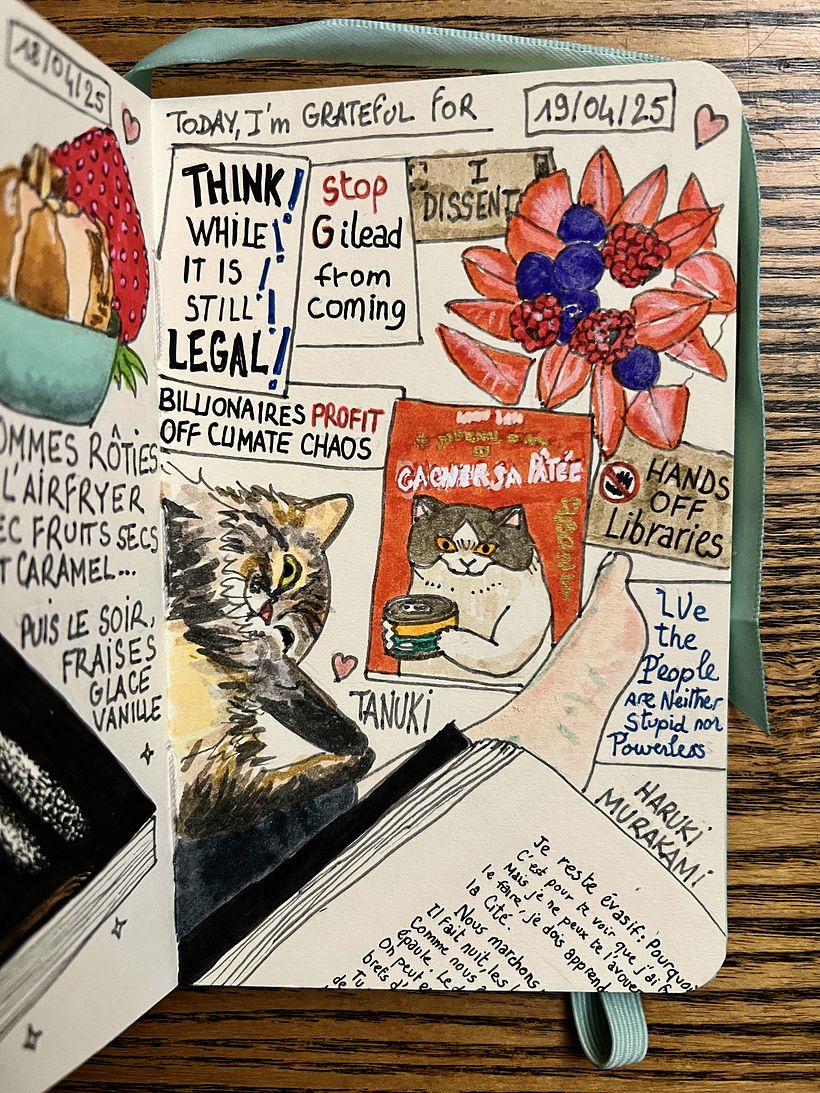 18/04/25
OMMES RÔTIES
L'AIRFRYER
EC FRUITS SECS
T CARAMEL...
PUIS LE SOIR,
FRAISES
GLACE
VANILLE
TODAY, I'm GRATEFUL FOR
19/04/25
THINK!
WHILE!
IT IS !
STILL !
LEGAL!
Stop
Gilead
from
coming
I
DISSENT
BILLIONAIRES PROFIT
OFF CLIMATE CHAOS
JOURNAL
GAGNER SA PÂTÉE
HANDS
OFF
Libraries
We
the
People
are Neither
Stupid nor
Powerless
TANUKI
HARUKI
MURAKAMI
Je reste évasif: Pourquoi
C'est pour te voir que j'ai f
Mais je ne peux te l'avouer
le faire, je dois apprend
la Cité.
Nous marchons
Il fait nuit, les l
Comme nous a
épaule. Le d
On peut e
brefs d'
Tu
de